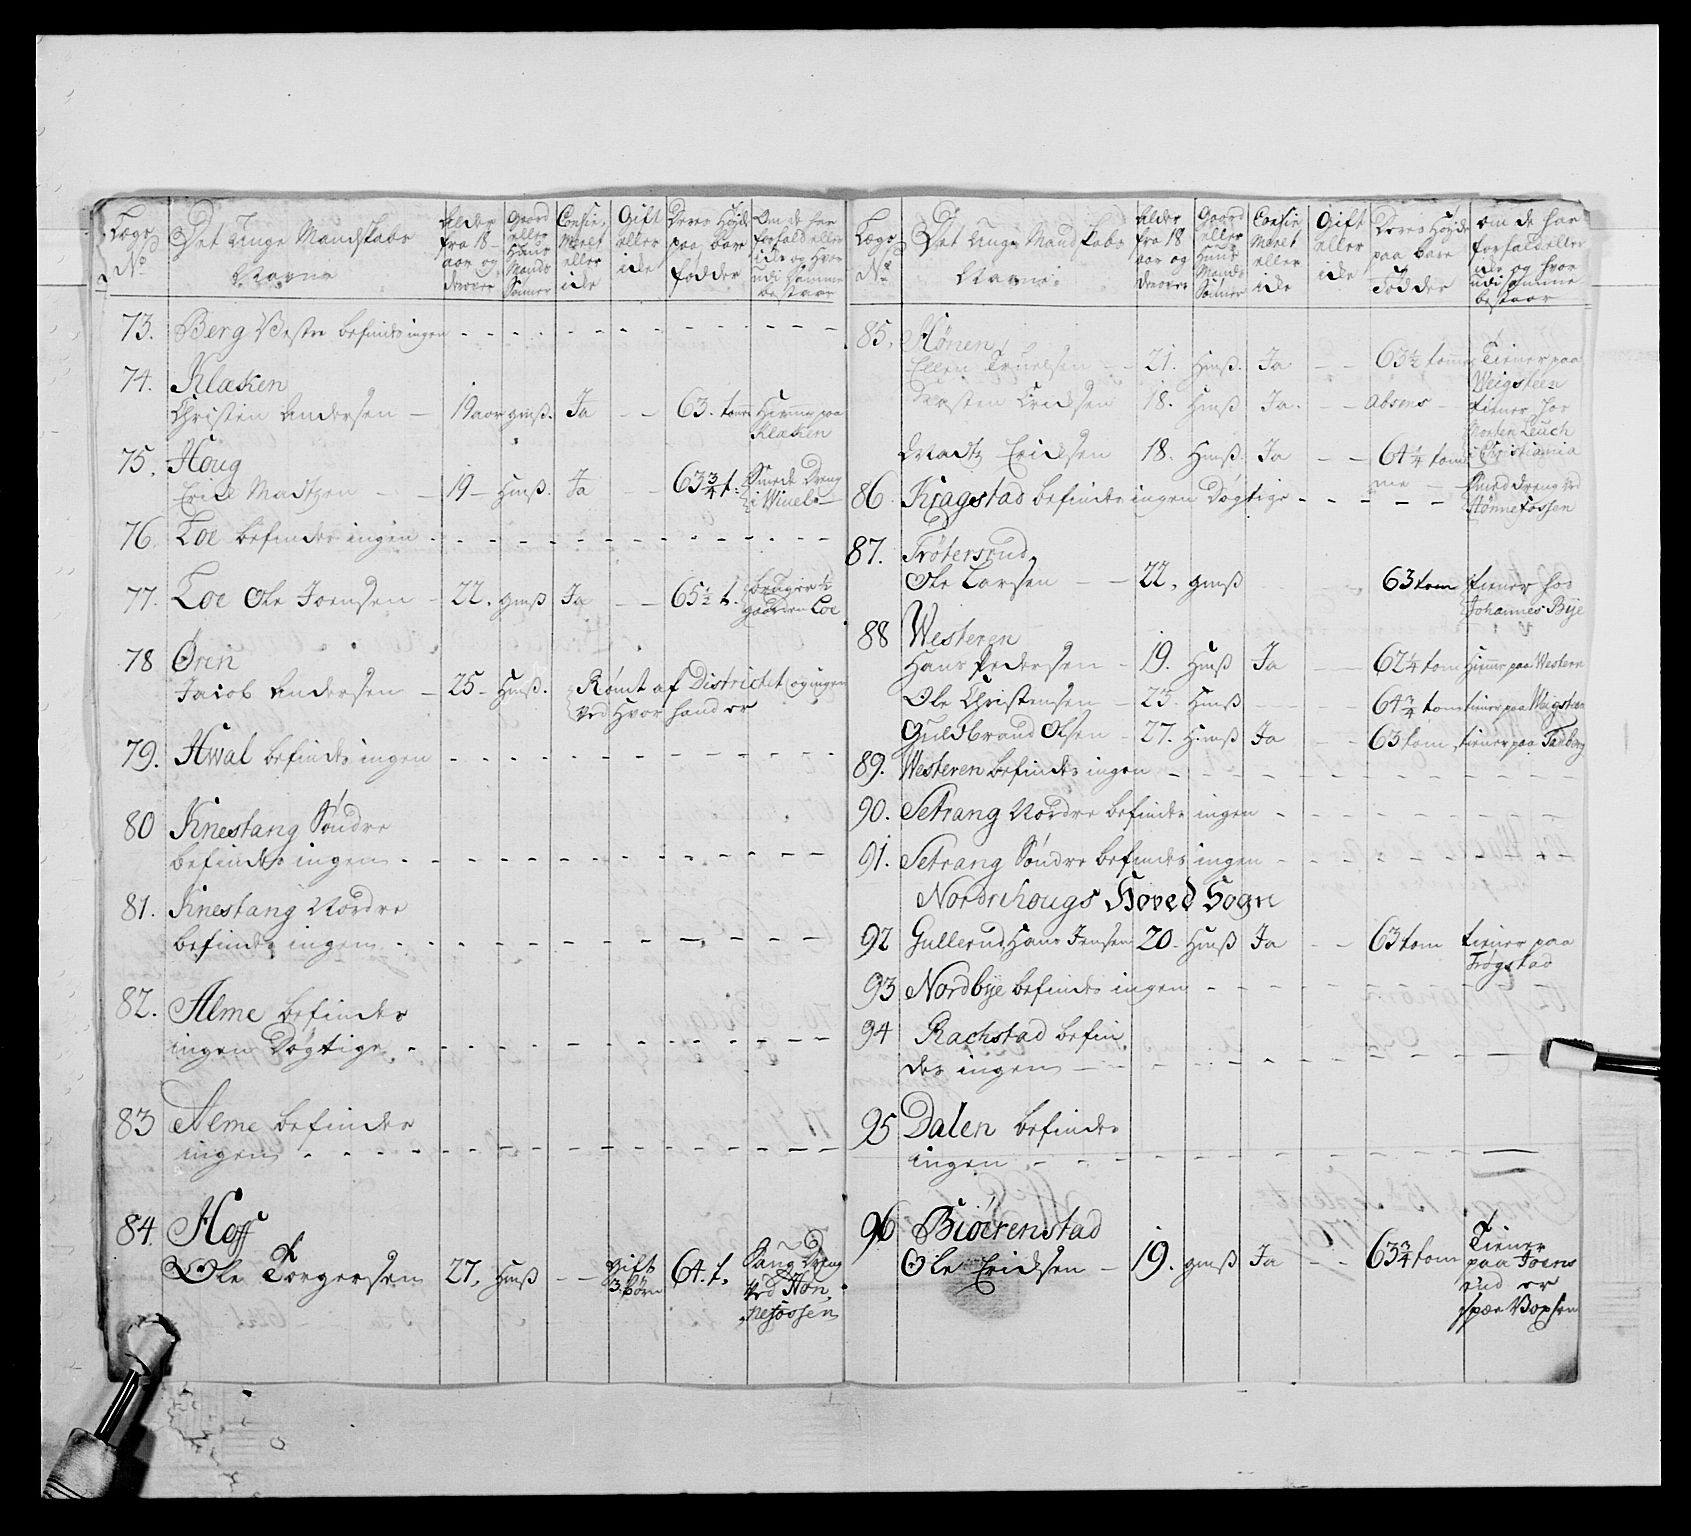 Lægs No
Det Unge Mandskabs Navne
Alder fra 18 aar og derover
Gaard eller Huus Mands Sønner
Confirmeret eller icke
Gift eller icke
Deres Høyde paa bare fødder
Om de har forfald eller icke og hvor udi samme bestaar
73. Berg Vestre befindes ingen
74. Klæken
Christen Andersen – 19 aar gmß. Ja – – 63. tom Hiemme paa
Klæken
75. Houg
Erick Madtzen – 19 – Hmß. Ja – 63 3/4 t. Smede Dreng
i Winels
76. Loe befindes ingen
77. Loe Ole Joensen – 22. gmß Ja – 65 1/2 t. bruger
gaarden Loe
78 Øren
Jacob Andersen – 25 – Hmß. Rømt af Districtet og ingen
ved Hvor hand er
79. Hwal befindes ingen
80 Knestang Søndre
befindes ingen
81. Knestang Nordre
befindes ingen
82. Alme befindes
ingen Døgtige
83 Alme befindes
ingen
84. Hoff
Ole Torgersen 27, Hmß – – gift 3 børn 64. t. Saug Dreng
ved Høn
nefossen
Lægs No
Det Unge Mandskabs Navne
Alder fra 18 aar og derover
Gaard eller Huus Mands Sønner
Confirmeret eller icke
Gift eller icke
Deres Høyde paa bare Fødder
om de har forfald eller icke og hvor udi samme bestaar
85. Hønen
Ellen Truelsen – 21. Hmß. Ja – – 63 1/2 tomme Tiener paa
Weigsteen
Karsten Ericksen 18. Hmß Ja. – – absens – tiener hos
Morten Leuch
i Christiania
Madtz Ericksen 18. Hmß. Ja – – 64 1/4 tom
me – Smed dreng ved
Hønnefossen
86 Kragstad befindes ingen Døgtige
87. Trøtersrud
Ole Larsen – – 22, gmß 63 tom tiener hos
Johannes Bye
88 Westeren
Hans Pedersen – 19. Hmß Ja – 62 1/4 tom Hiemme paa Western
Ole Christensen – 23. Hmß – – 64 3/4 tom tiener paa Weigsteen
Guldbrand Olsen – 27. Hmß Ja – – 63 tom, tiener paa Tanberg
89. Westeren befindes ingen
90. Setrang Nordre befindes ingen
91. Setrang Søndre befindes ingen
Nordrehougs Hoved Sogn
92 Gullerud, Hans Jensen 20 – Hmß Ja – – 63 tom tiener paa
Frøgstad
93 Nordbye befindes ingen
94 Rachstad befin
des ingen
95 Dalen befindes
ingen
96 Biørenstad
Ole Ericksen – 19. gmß Ja – – 63 3/4 tom Tiener
paa Joens
rud er
spæe Voxsen